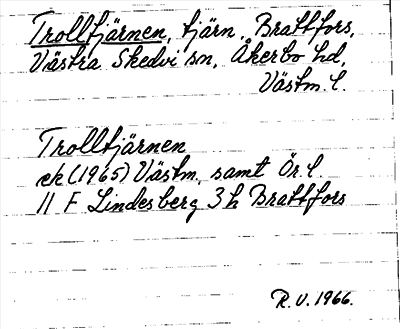 Trolltjärnen, tjärn, Brattfors,
Västra Skedvi sn, Åkerbo hd,
Västm. l.
Trolltjärnen
ek (1965) Västm. samt Ör. l.
11 F Lindesberg 3 h Brattfors
R. V. 1966.